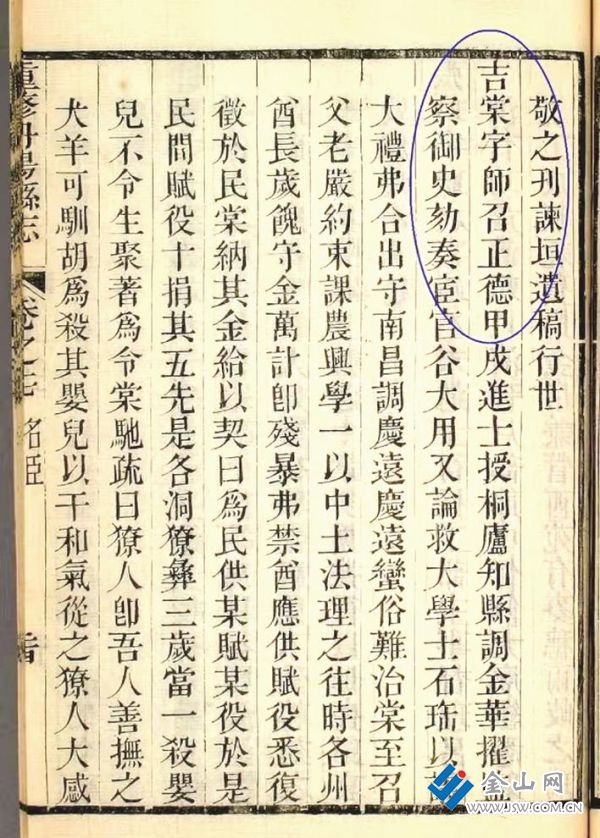 敬之刊諫垣遺稿行世
吉棠字師召正德甲戌進士授桐廬知縣調金華擢監
察御史劾奏宦官谷大用又論救大學士石珤以
大禮弗合出守南昌調慶遠慶遠蠻俗難治棠至召
父老嚴約束課農興學一以中土法理之往時各州
酋長歲餽守金萬計卽殘暴弗禁酋應供賦役悉復
徵於民棠納其金給以契曰爲民供某賦某役於是
民間賦役十捐其五先是各洞獠彝三歲當一殺嬰
兒不令生聚著爲令棠馳疏曰獠人卽吾人善撫之
犬羊可馴胡爲殺其嬰兒以干和氣從之獠人大感
重修丹陽縣志
卷之
名臣
金山网
www.JSW.COM.CN